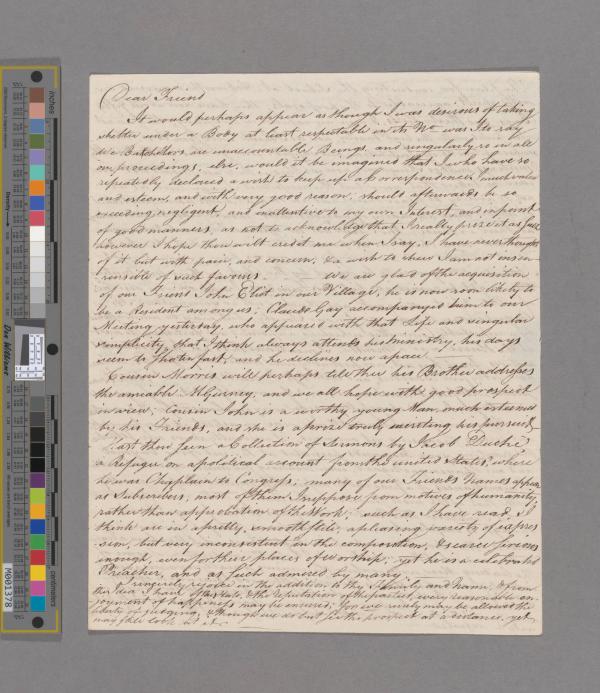 Dear Friend
It would perhaps appear as though I was desirous of taking
shelter under a Body at least respectable in its No. was I to say
We Batchelors are unaccountable Beings, and singularly so in all
our proceedings, else, would it be imagined that I who have so
repeatedly declared a wish to keep up a Correspondence I much value
and esteem, and with very good reason, should afterwards be so
exceeding negligent, and inattentive to my own Interest, and in point
of good manners, as not to acknowledge that I really prize it as such
however I hope thou wilt credit me when I say, I have never thought
of it but with pain, and concern, & a wish to shew I am not insen-
sensible of such favours. We are glad of the acquisition
of our Friend John Eliot in our Village, he is now soon likely to
be a Resident among us; Claude Gay accompanyed him to our
Meeting yesterday, who appeared with that Life and singular
simplicity that I think always attends his ministry, his days
seem to shorten fast, and he declines now apace.
Cousin Morris will perhaps tell thee his Brother addresses
the amiable H Gurney, and we all hope with good prospect
in view; Cousin John is a worthy young Man, much esteemed
by his Friends, and she is a prize truly meriting his pursuit
Hast thou seen a Collection of Sermons by Jacob Duché,
a Refugee on a political account from the united States, where
he was Chaplain to Congress; many of our Friends Names appear
as Subscribers, most of them I suppose from motives of humanity,
rather than approbation of the Work; such as I have read, I
think are in a pretty, smooth stile, a pleasing variety of expres
sion, but very inconsistent in the composition, & scarce serious
enough, even for their places of worship; yet he is a celebrated
Preacher, and as such admired by many.
I sincerely rejoice in the addition to thy Family and Name, & from
the idea I have of the reputation of the parties, every reasonable en-
joyment of happiness may be ensured; for we surely may be allowed the
in judging, though we do but see the prospect at a distance, yet
may
inches
centimeters
Don Williams
M001378